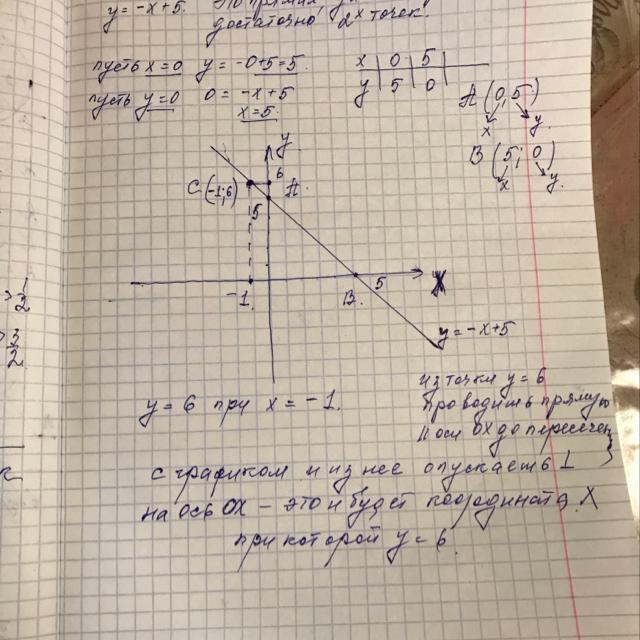 y = -x + 5. Это прямая
достаточно 2х точек.
пусть x = 0 y = -0+5=5.
пусть y=0 0 = -x+5
x = 5.
x 0 5
y 5 0
A (0,5)
x y.
B (5; 0)
x y.
y
C(-1;6) 6 A.
5
-1. B. 5 X
y = -x+5
1
2
3
2
y = 6 при x = -1.
из точки y = 6
проводишь прямую
// оси OX до пересечен
с графиком и из нее опускаешь ⊥
на ось OX - это и будет координата X
при которой y = 6.